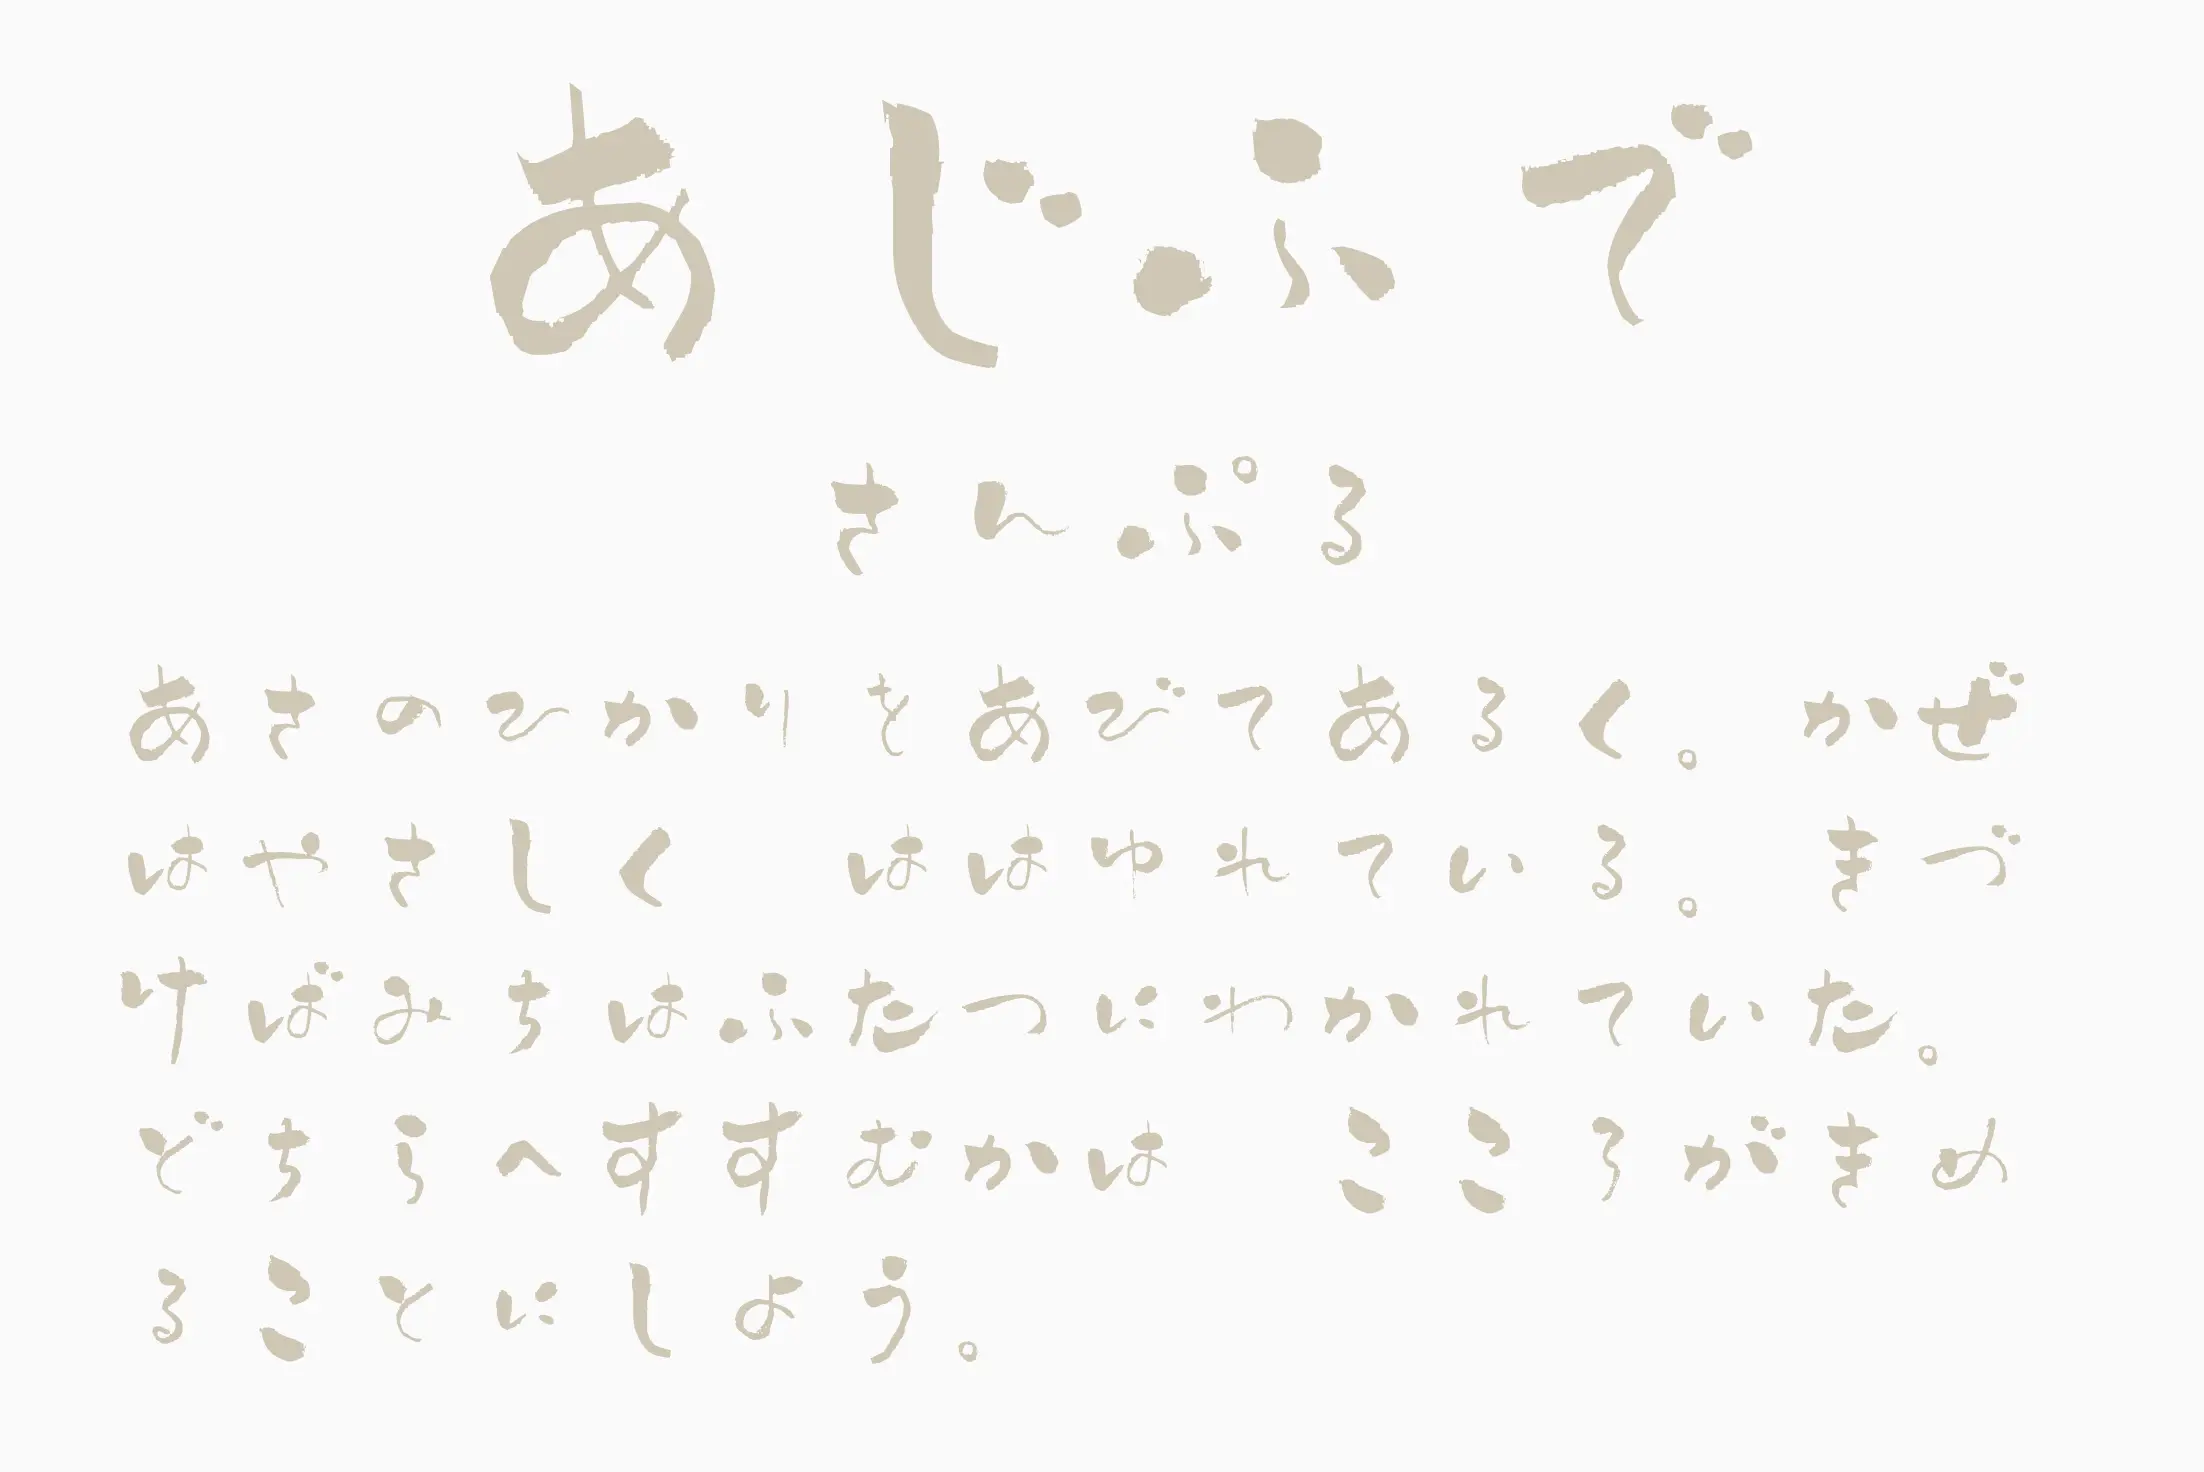 あじふで
さんぷる
あさのひかりをあびてあるく。かぜ
はやさしく　ははゆれている。　きづ
けばみちはふたつにわかれていた。
どちらへすすむかは　こころがきめ
ることにしよう。